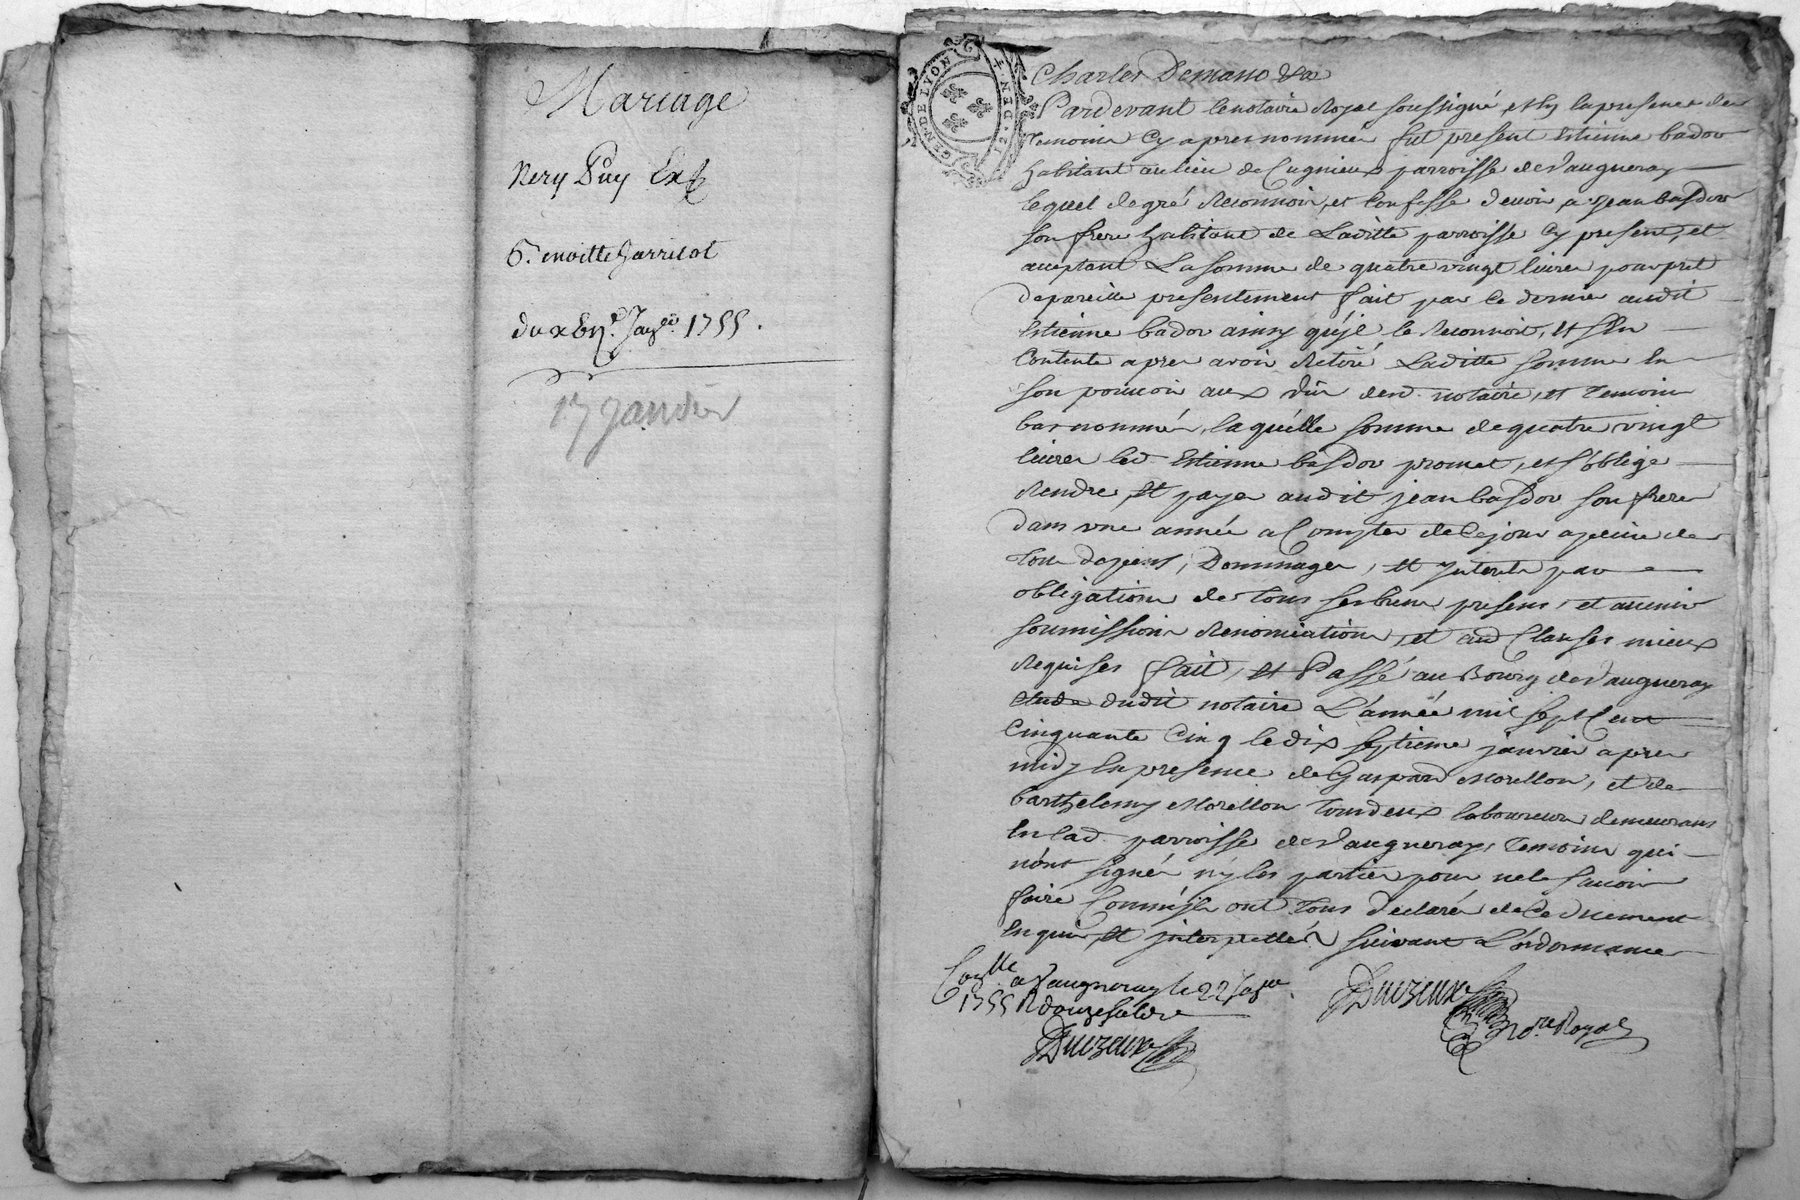 Mariage
Rery Puy Ex
Benoitte Garricot
du xbii.e Jan.er 1755.
17 Janvier
GEN. DE LYON
12. DEN.
Charles Demano
Pardevant le notaire Royal soussigné, et En la presence des
Temoins Cy apres nommés fut present Estienne bador
habitant au lieu de Cugnieux parroisse de Vaugneray
lequel de gré Reconnoit, et Confesse devoir a jean basdor
son frere habitant de Laditte parroisse Cy present, et
acceptant La somme de quatre vingt livres pour pret
de pareille presentement fait par ce dernier audit
Estienne bador ainsy qu'il le Reconnoit, et s'En
Contente apres avoir Retiré Laditte somme En
son pouvoir aux vüe dud. notaire, et temoins
bas nommés, laquélle somme de quatre vingt
livres led. Estienne basdor promet, et s'oblige
Rendre, et payer audit jean basdor son frere
dans une année a Compter de Ce jour a peine de
tous depens, Dommages, et Interets par
obligation de tous ses biens presens, et avenir
soumissions Renonciations, et aud Clauses mieux
Requises fait, et Passé au Bourg de Vaugneray
etude dudit notaire L'année mil sept Cent
Cinquante Cinq le dix septieme janvier apres
midy En presence de Gaspard Morellon, et de
barthelemy Morellon tous deux laboureurs demeurans
En lad. parroisse de Vaugneray, Temoins qui
n'ont signé n'y les parties pour ne le savoir
faire Comm'ils ont tous declaré de Ce duement
Enquis, et interpellés suivant L'ordonnance
Con.lle a Vaugneray le 22 Jan.er
1755 R douze sols